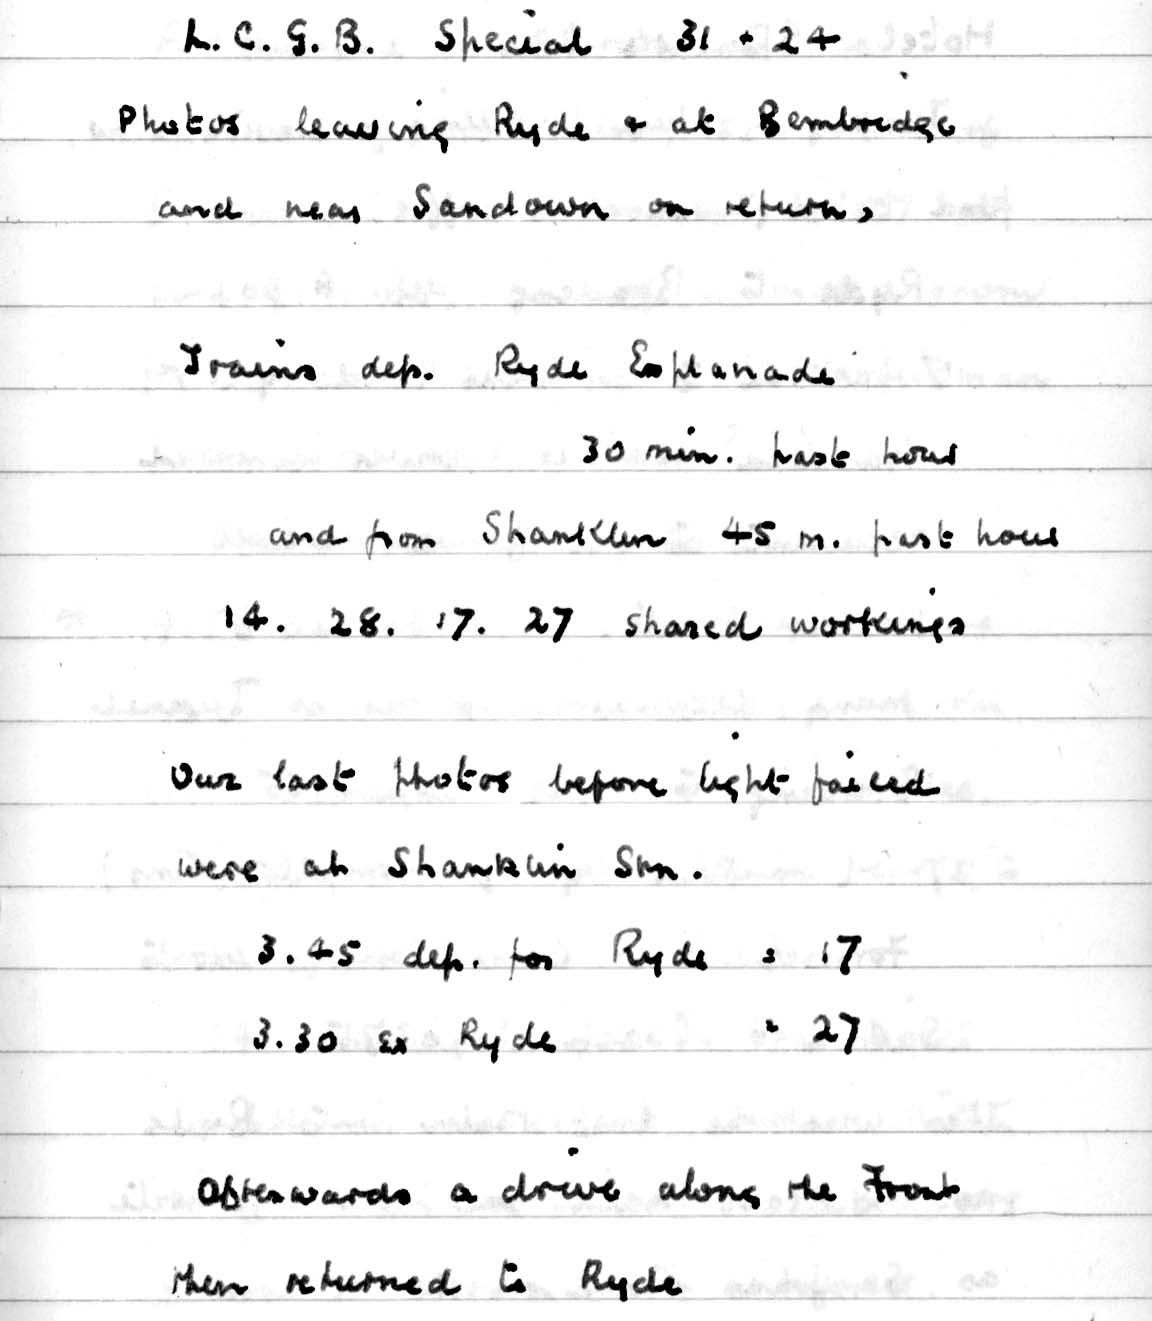 L. C. G. B. Special 31 + 24
Photos leaving Ryde & at Bembridge
and near Sandown on return,
Trains dep. Ryde Esplanade
30 min. past hour
and from Shanklin 45 m. past hour
14. 28. 17. 27 shared workings
Our last photos before light failed
were at Shanklin Stn.
3.45 dep. for Ryde = 17
3.30 ex Ryde = 27
Afterwards a drive along the Front
then returned to Ryde